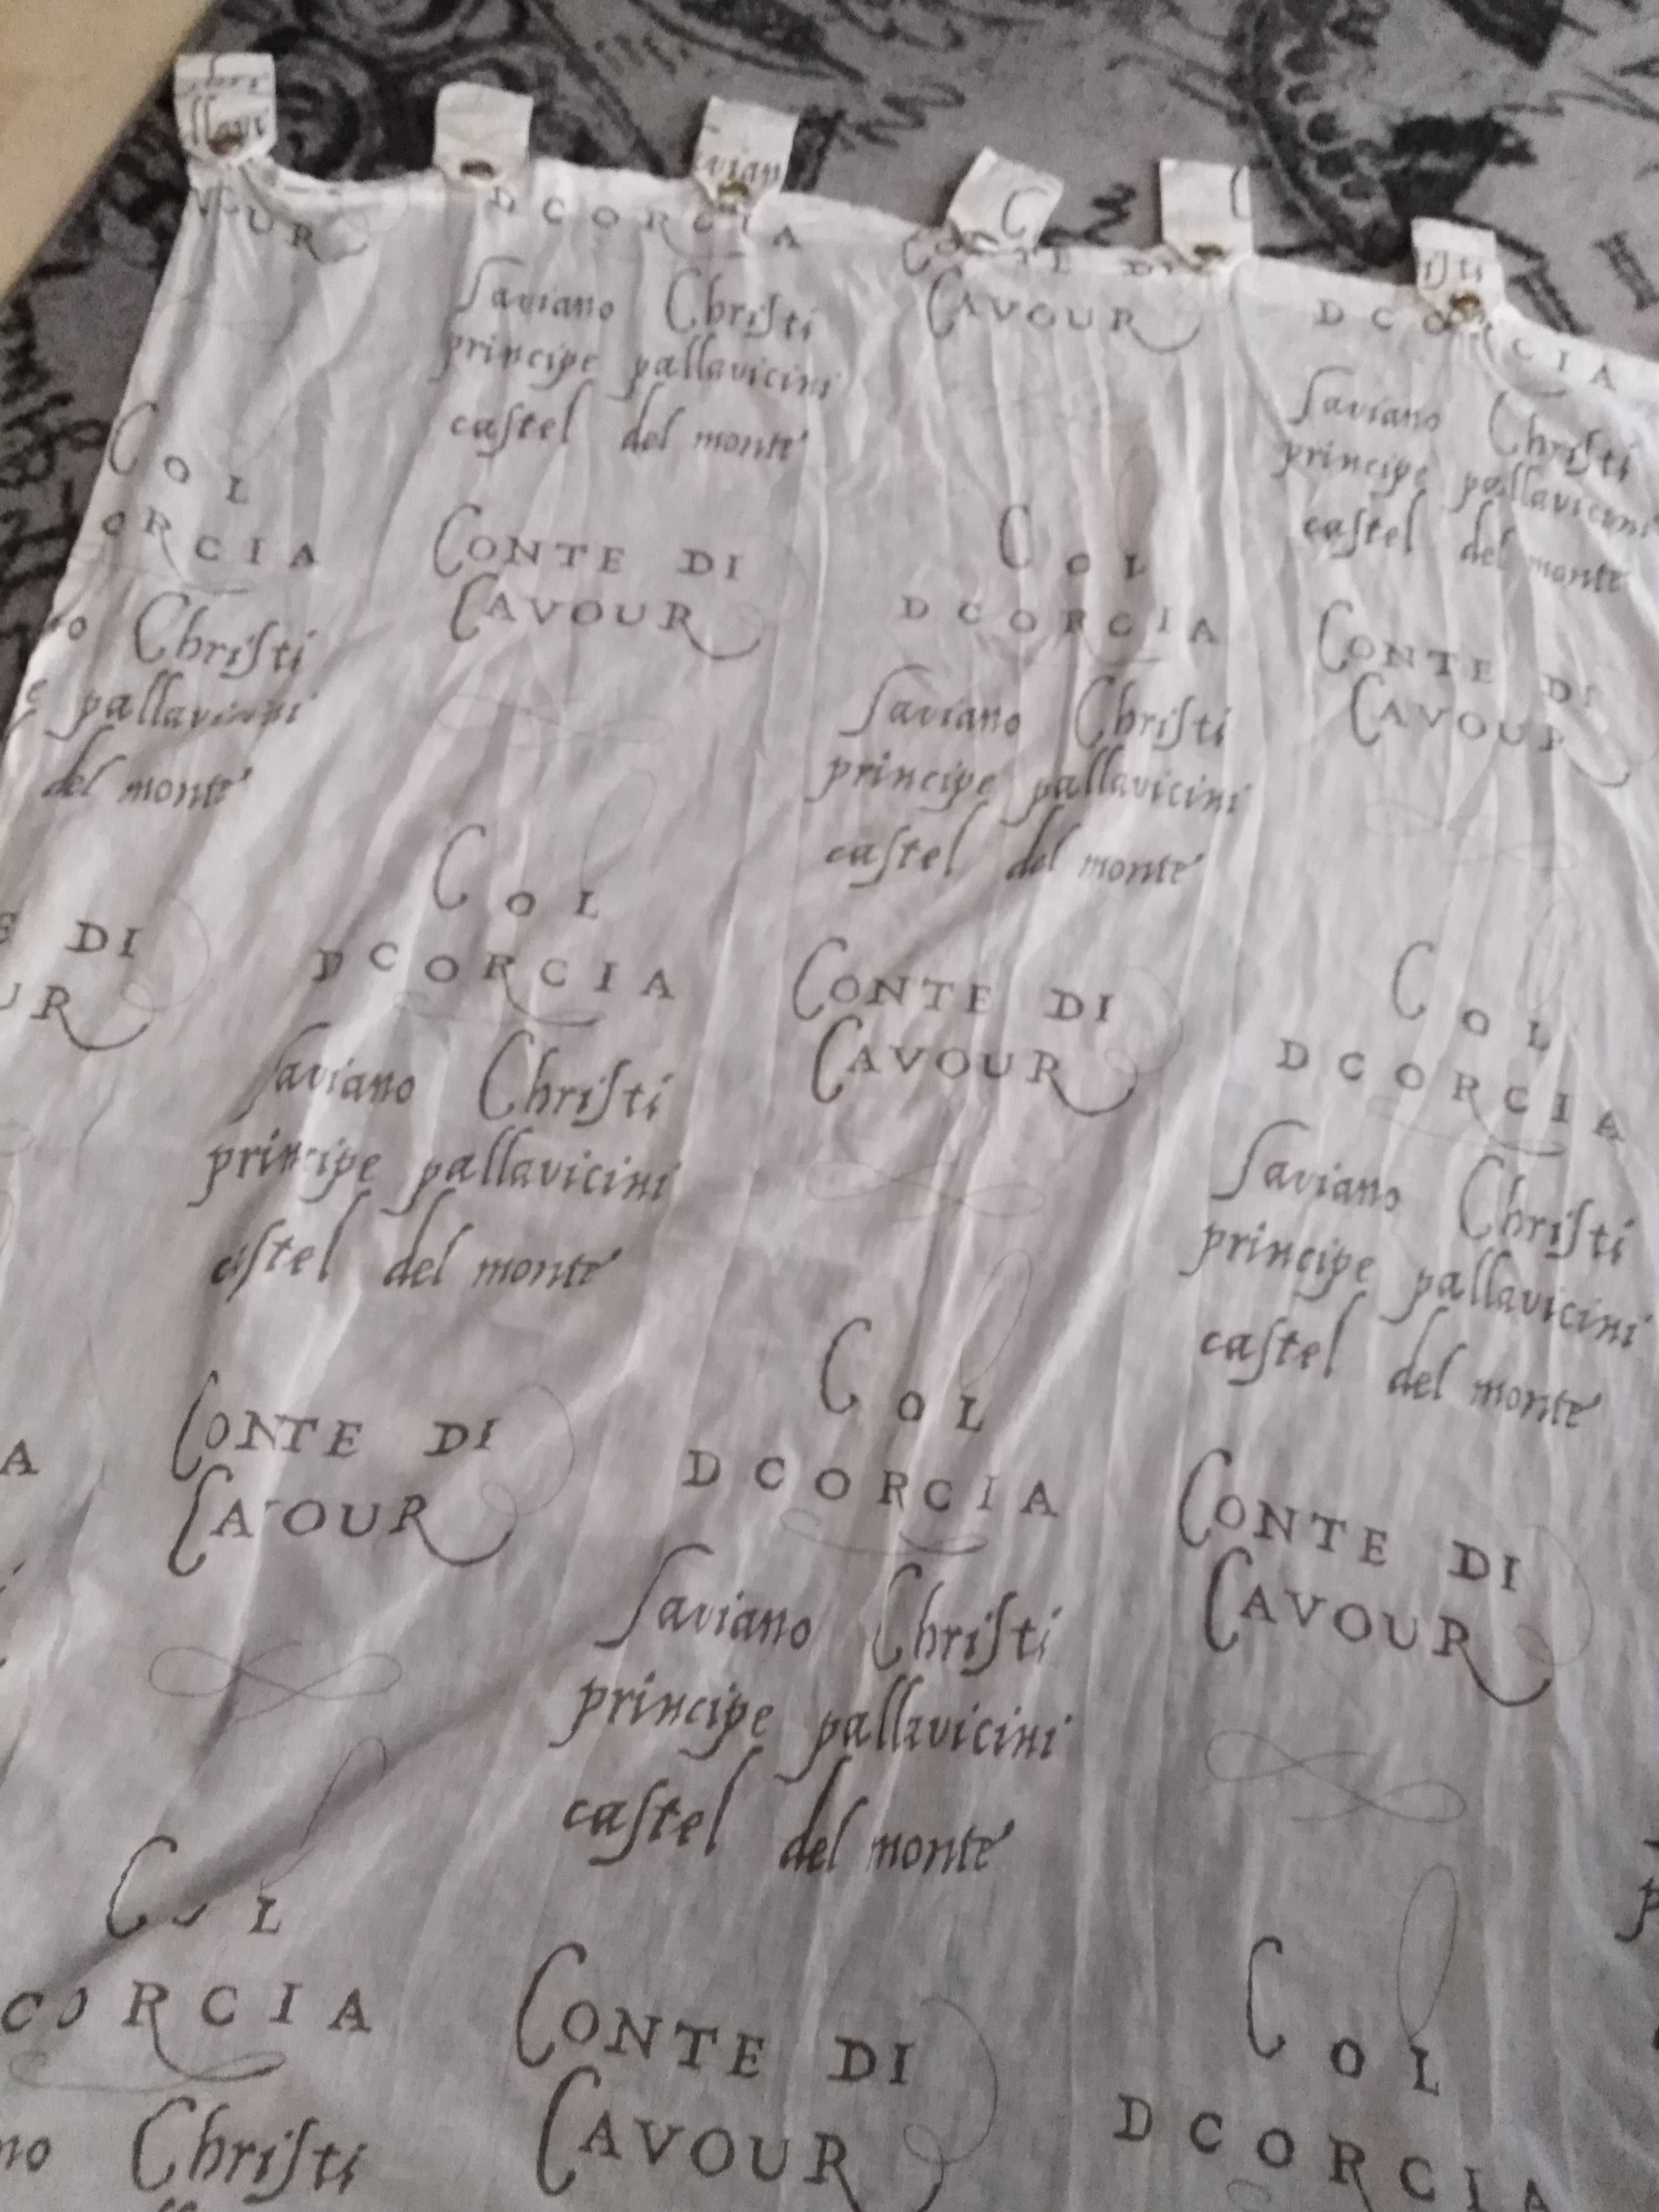 VOUR
DCORCIA
Saviano Christi
principe pallavicini
castel del monte
CONTE DI
CAVOUR
DCORCIA
Saviano Christi
principe pallavicini
castel del monte
COL
ORCIA
Christi
pallavicini
del monte
CONTE DI
CAVOUR
COL
DCORCIA
Saviano Christi
principe pallavicini
castel del monte
CONTE DI
CAVOUR
DI
UR
COL
DCORCIA
Saviano Christi
principe pallavicini
castel del monte
CONTE DI
CAVOUR
COL
DCORCIA
Saviano Christi
principe pallavicini
castel del monte
A
CONTE DI
CAVOUR
COL
DCORCIA
Saviano Christi
principe pallavicini
castel del monte
CONTE DI
CAVOUR
COL
CORCIA
no Christi
CONTE DI
CAVOUR
COL
DCORCIA